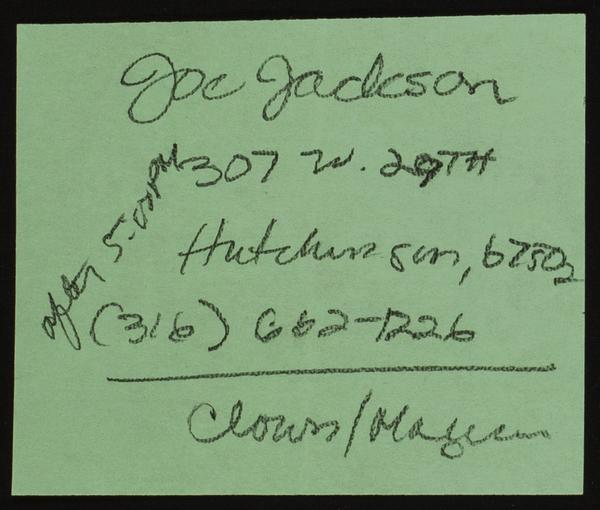 Joe Jackson
307 W. 29TH
Hutchinson, 67502
(316) 662-1226
after 5:00PM
Clown/Magician